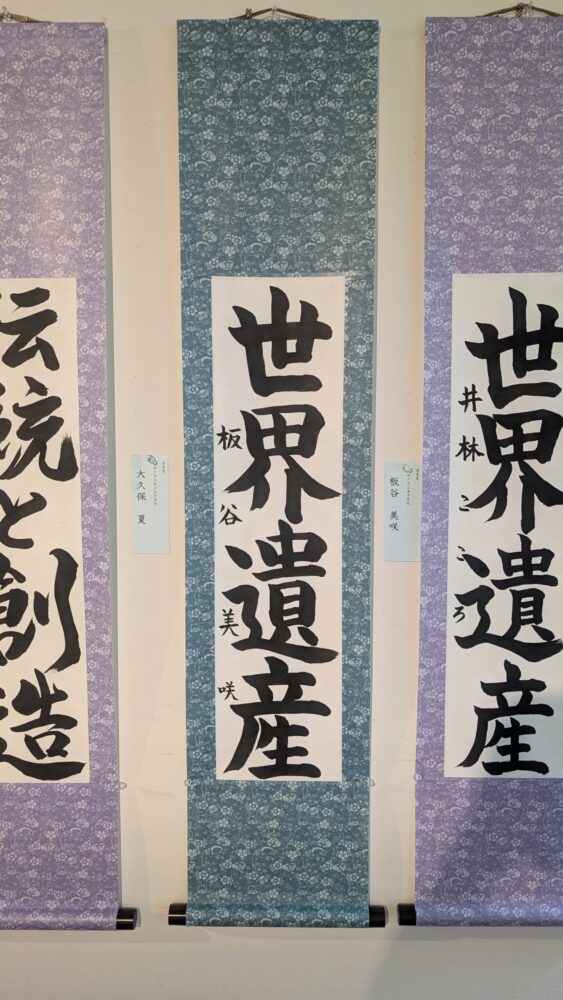 世界遺産
井林こころ
板谷 美咲
世界遺産
板谷美咲
大久保 夏
伝統と創造